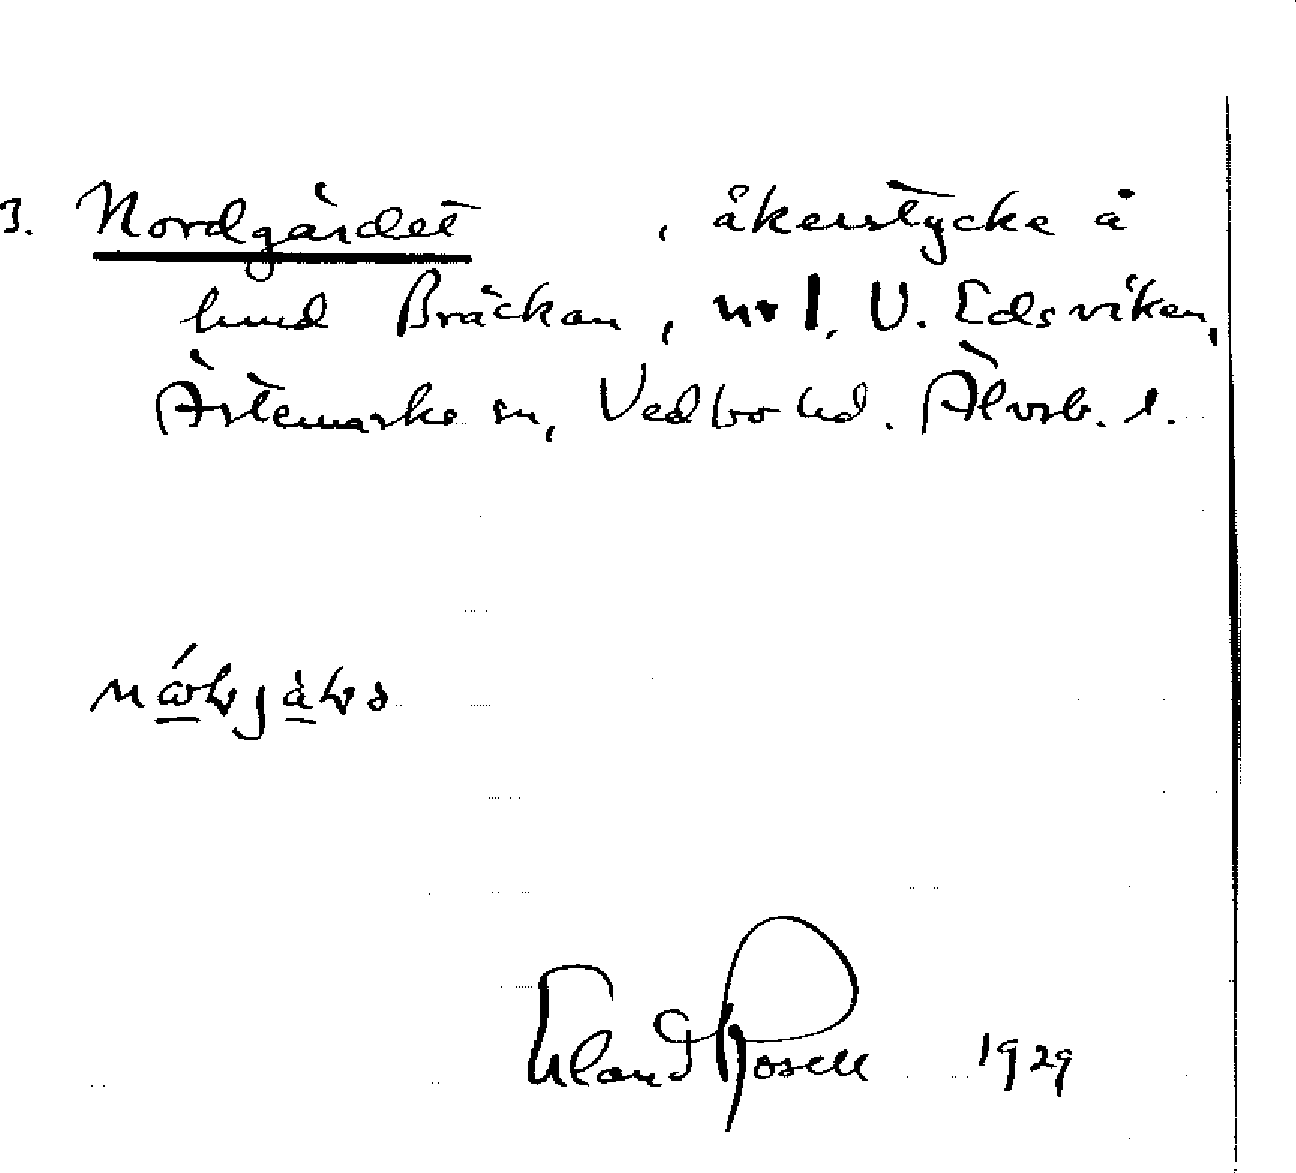 3. Nordgärdet, åkerstycke å
hmd Bräckan, nr 1, V. Edsviken,
Ärtemarks sn, Vedbo hd. Älvsb. l.
Erland Rosell 1929